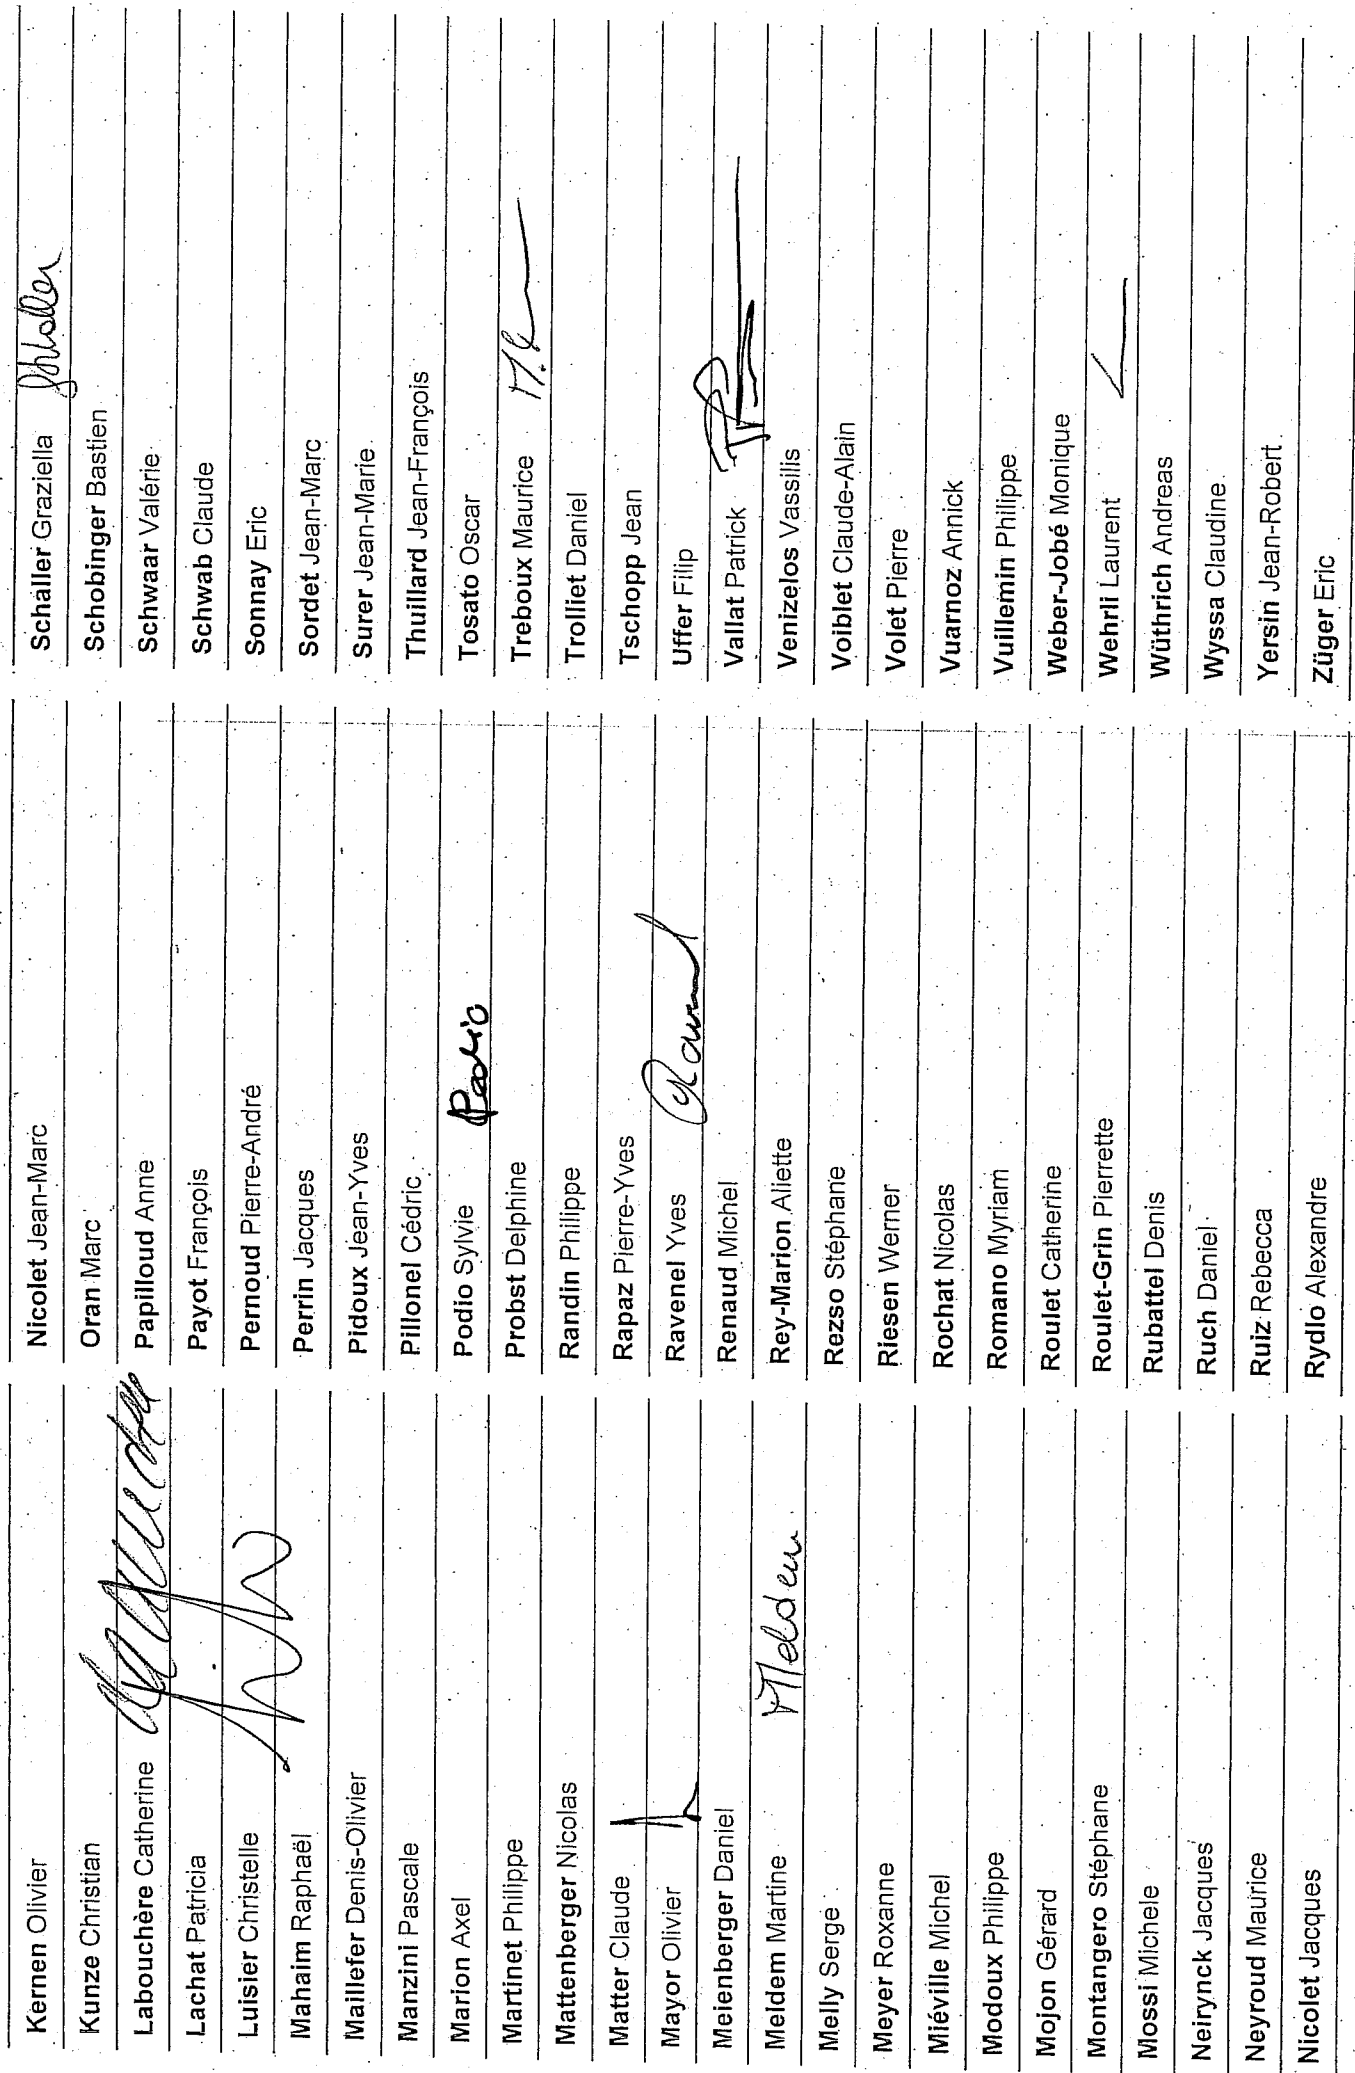 Kernen Olivier
Kunze Christian
Labouchère Catherine
Lachat Patricia
Luisier Christelle
Mahaim Raphaël
Maillefer Denis-Olivier
Manzini Pascale
Marion Axel
Martinet Philippe
Mattenberger Nicolas
Matter Claude
Mayor Olivier
Meienberger Daniel
Meldem Martine Meldem
Melly Serge
Meyer Roxanne
Miéville Michel
Modoux Philippe
Mojon Gérard
Montangero Stéphane
Mossi Michele
Neirynck Jacques
Neyroud Maurice
Nicolet Jacques
Nicolet Jean-Marc
Oran Marc
Papilloud Anne
Payot François
Pernoud Pierre-André
Perrin Jacques
Pidoux Jean-Yves
Pillonel Cédric
Podio Sylvie Podio
Probst Delphine
Randin Philippe
Rapaz Pierre-Yves
Ravenel Yves Ravenel
Renaud Michel
Rey-Marion Aliette
Rezso Stéphane
Riesen Werner
Rochat Nicolas
Romano Myriam
Roulet Catherine
Roulet-Grin Pierrette
Rubattel Denis
Ruch Daniel
Ruiz Rebecca
Rydlo Alexandre
Schaller Graziella Schaller
Schobinger Bastien
Schwaar Valérie
Schwab Claude
Sonnay Eric
Sordet Jean-Marc
Surer Jean-Marie
Thuillard Jean-François
Tosato Oscar
Treboux Maurice
Trolliet Daniel
Tschopp Jean
Uffer Filip
Vallat Patrick
Venizelos Vassilis
Voiblet Claude-Alain
Volet Pierre
Vuarnoz Annick
Vuillemin Philippe
Weber-Jobé Monique
Wehrli Laurent
Wüthrich Andreas
Wyssa Claudine
Yersin Jean-Robert
Züger Eric